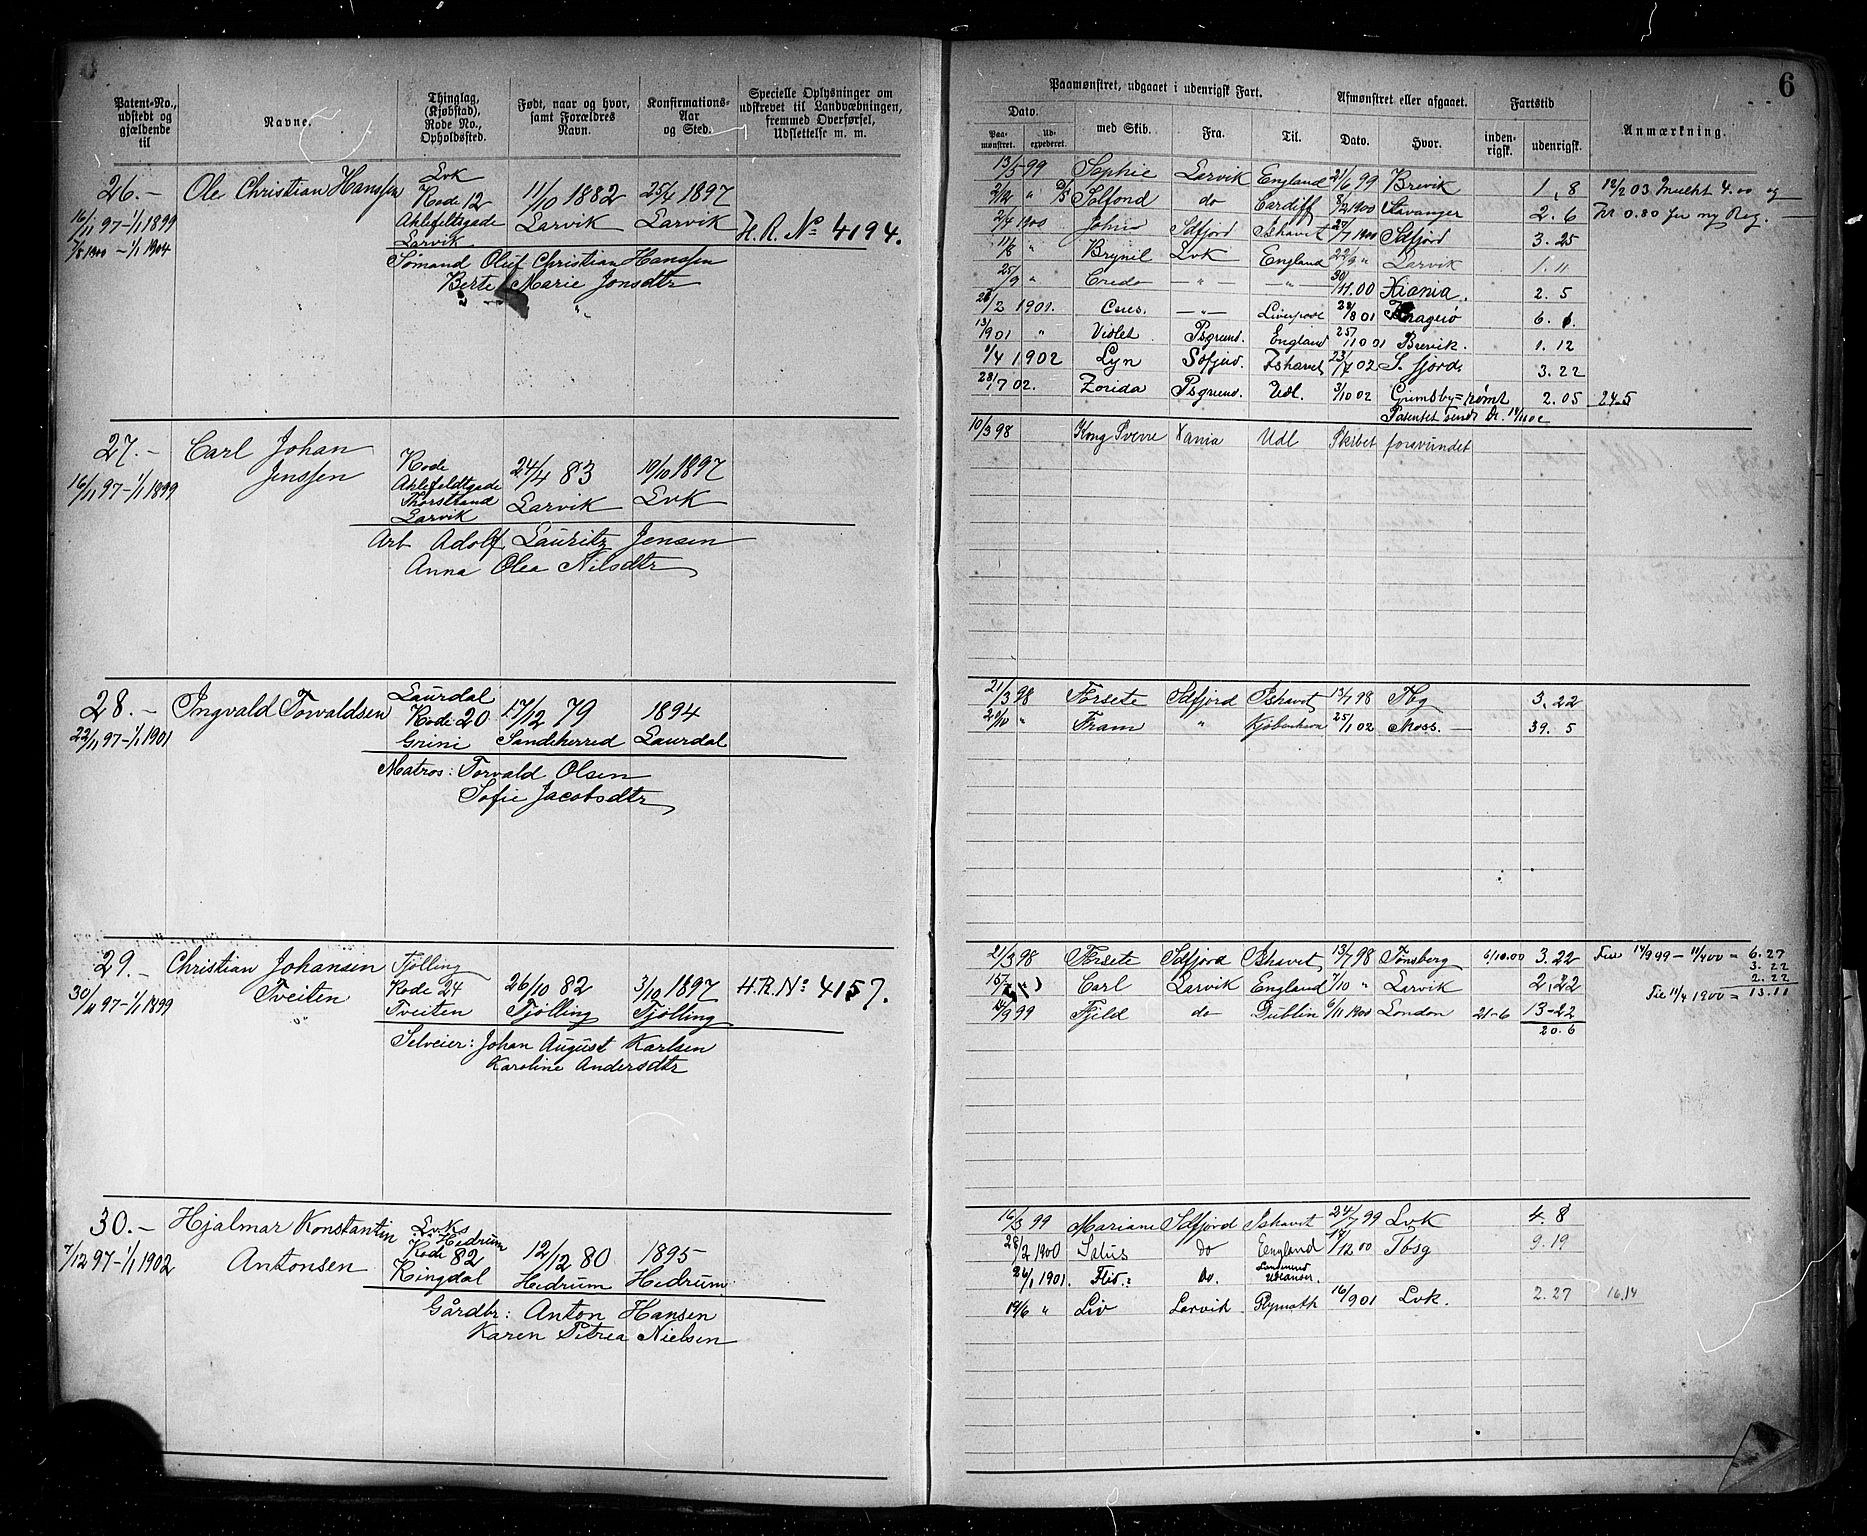 6
Patent-No., udstedt og gjældende til
Navne.
Thinglag, (Kjøbstad), Rode No., Opholdssted.
Født, naar og hvor, samt Forældres Navn.
Konfirmations-Aar og Sted.
Specielle Oplysninger om udskrevet til Landværnet, fremmed Overførsel, Udslettelse m. m.
26.- Ole Christian Hanssen
16/11 97-1/1 1899
1/1 1904
Lvk
Rode 12
Ahlefeldtgade
Larvik
11/10 1882
Larvik
25/4 1897
Larvik
H. R. No 4194.
Sømand Oluf Christian Hanssen
Berte Marie Jonsdtr
27.- Carl Johan Jenssen
16/11 97-1/1 1899
Rode
Ahlefeldtgade
Thorstrand
Larvik
24/4 83
Larvik
10/10 1897
Lvk
Arb Adolf Lauritz Jensen
Anna Olea Nilsdtr
28.- Ingvald Torvaldsen
22/11 97-1/1 1901
Laurdal
Rode 20
Grini
17/12 79
Sandeherred
1894
Laurdal
Matros: Torvald Olsen
Sofie Jacobsdtr
29.- Christian Johansen Tveiten
30/11 97-1/1 1899
Tjölling
Rode 24
Tveiten
26/10 82
Tjölling
3/10 1897
Tjölling
H.R. No 4157.
Selveier: Johan August Karlsen
Karoline Andersdtr
30.- Hjalmar Konstantin Antonsen
7/12 97-1/1 1902
Hedrum
Rode 82
Ringdal
12/12 80
Hedrum
1895
Hedrum
Gårdbr: Anton Hansen
Karen Petrea Nielsen
6
Paamønstret, udgaaet i udenrigsk Fart.
Afmønstret eller afgaaet.
Fartstid
Anmærkning.
Dato.
Paamønstret.
Udexpederet.
med Skib.
Fra.
Til.
Dato.
Hvor.
indenrigsk.
udenrigsk.
13/5-99 Sophie Larvik England 21/6 99 Brevik 1.8 12/2 03 Mulkt 4.00 og
Solfond do Cardiff 8/2 1900 Stavanger 2.6 Kr 0.80 for ny Reg.
2/4 1900 Sdfjord Ishavet 1900 Sdfjord 3.25
11/8 " Lvk England 22/9 " Larvik 1.11
25/9 " Credo - " - - " - 30/11 00 Xiania. 2.5
28/2 1901. Ceres. - " - Liverpool 28/8 01 Kragerø 6.
13/9 01 " Violet Psgrund. England 25/11 01 Brevik. 1.12
1/4 1902 Lyn Ishavet 23/7 02 S. fjord 3.22
28/7 02. Zorida Psgrund. Udl. 3/10 02 Grimsby = rømt 2.05 24.5
Patentet sendt
10/3 98 Kong Sverre Xania Udl Skibet forsvundet
21/3 98 Forsete Sdfjord Ishavet 13/7 98 Tbg 3.22
Fram " Kjøbenhavn 25/1 02 Moss. 39.5
21/3 98 Forsete Sdfjord Ishavet 13/7 98 Tønsberg 6/10.00 3.22 14/9 99 - 11/4 00 = 6.27
3.22
15/7 Carl Larvik England 7/10 " Larvik 2.22 2.22
11/4 1900 = 13.11
14/9 99 Fjeld do Dublin 6/11 1900 London 21-6 13-22
20.6
16/3 99 Mariane Sdfjord Ishavet 24/7 99 Lvk 4.8
28/2 1900 Salus do England 12 00 Tbsg 9.19
26/1 1901. do.
19/6 " Liv Larvik Plymoth 16/9 01 Lvk. 2.27 16.14